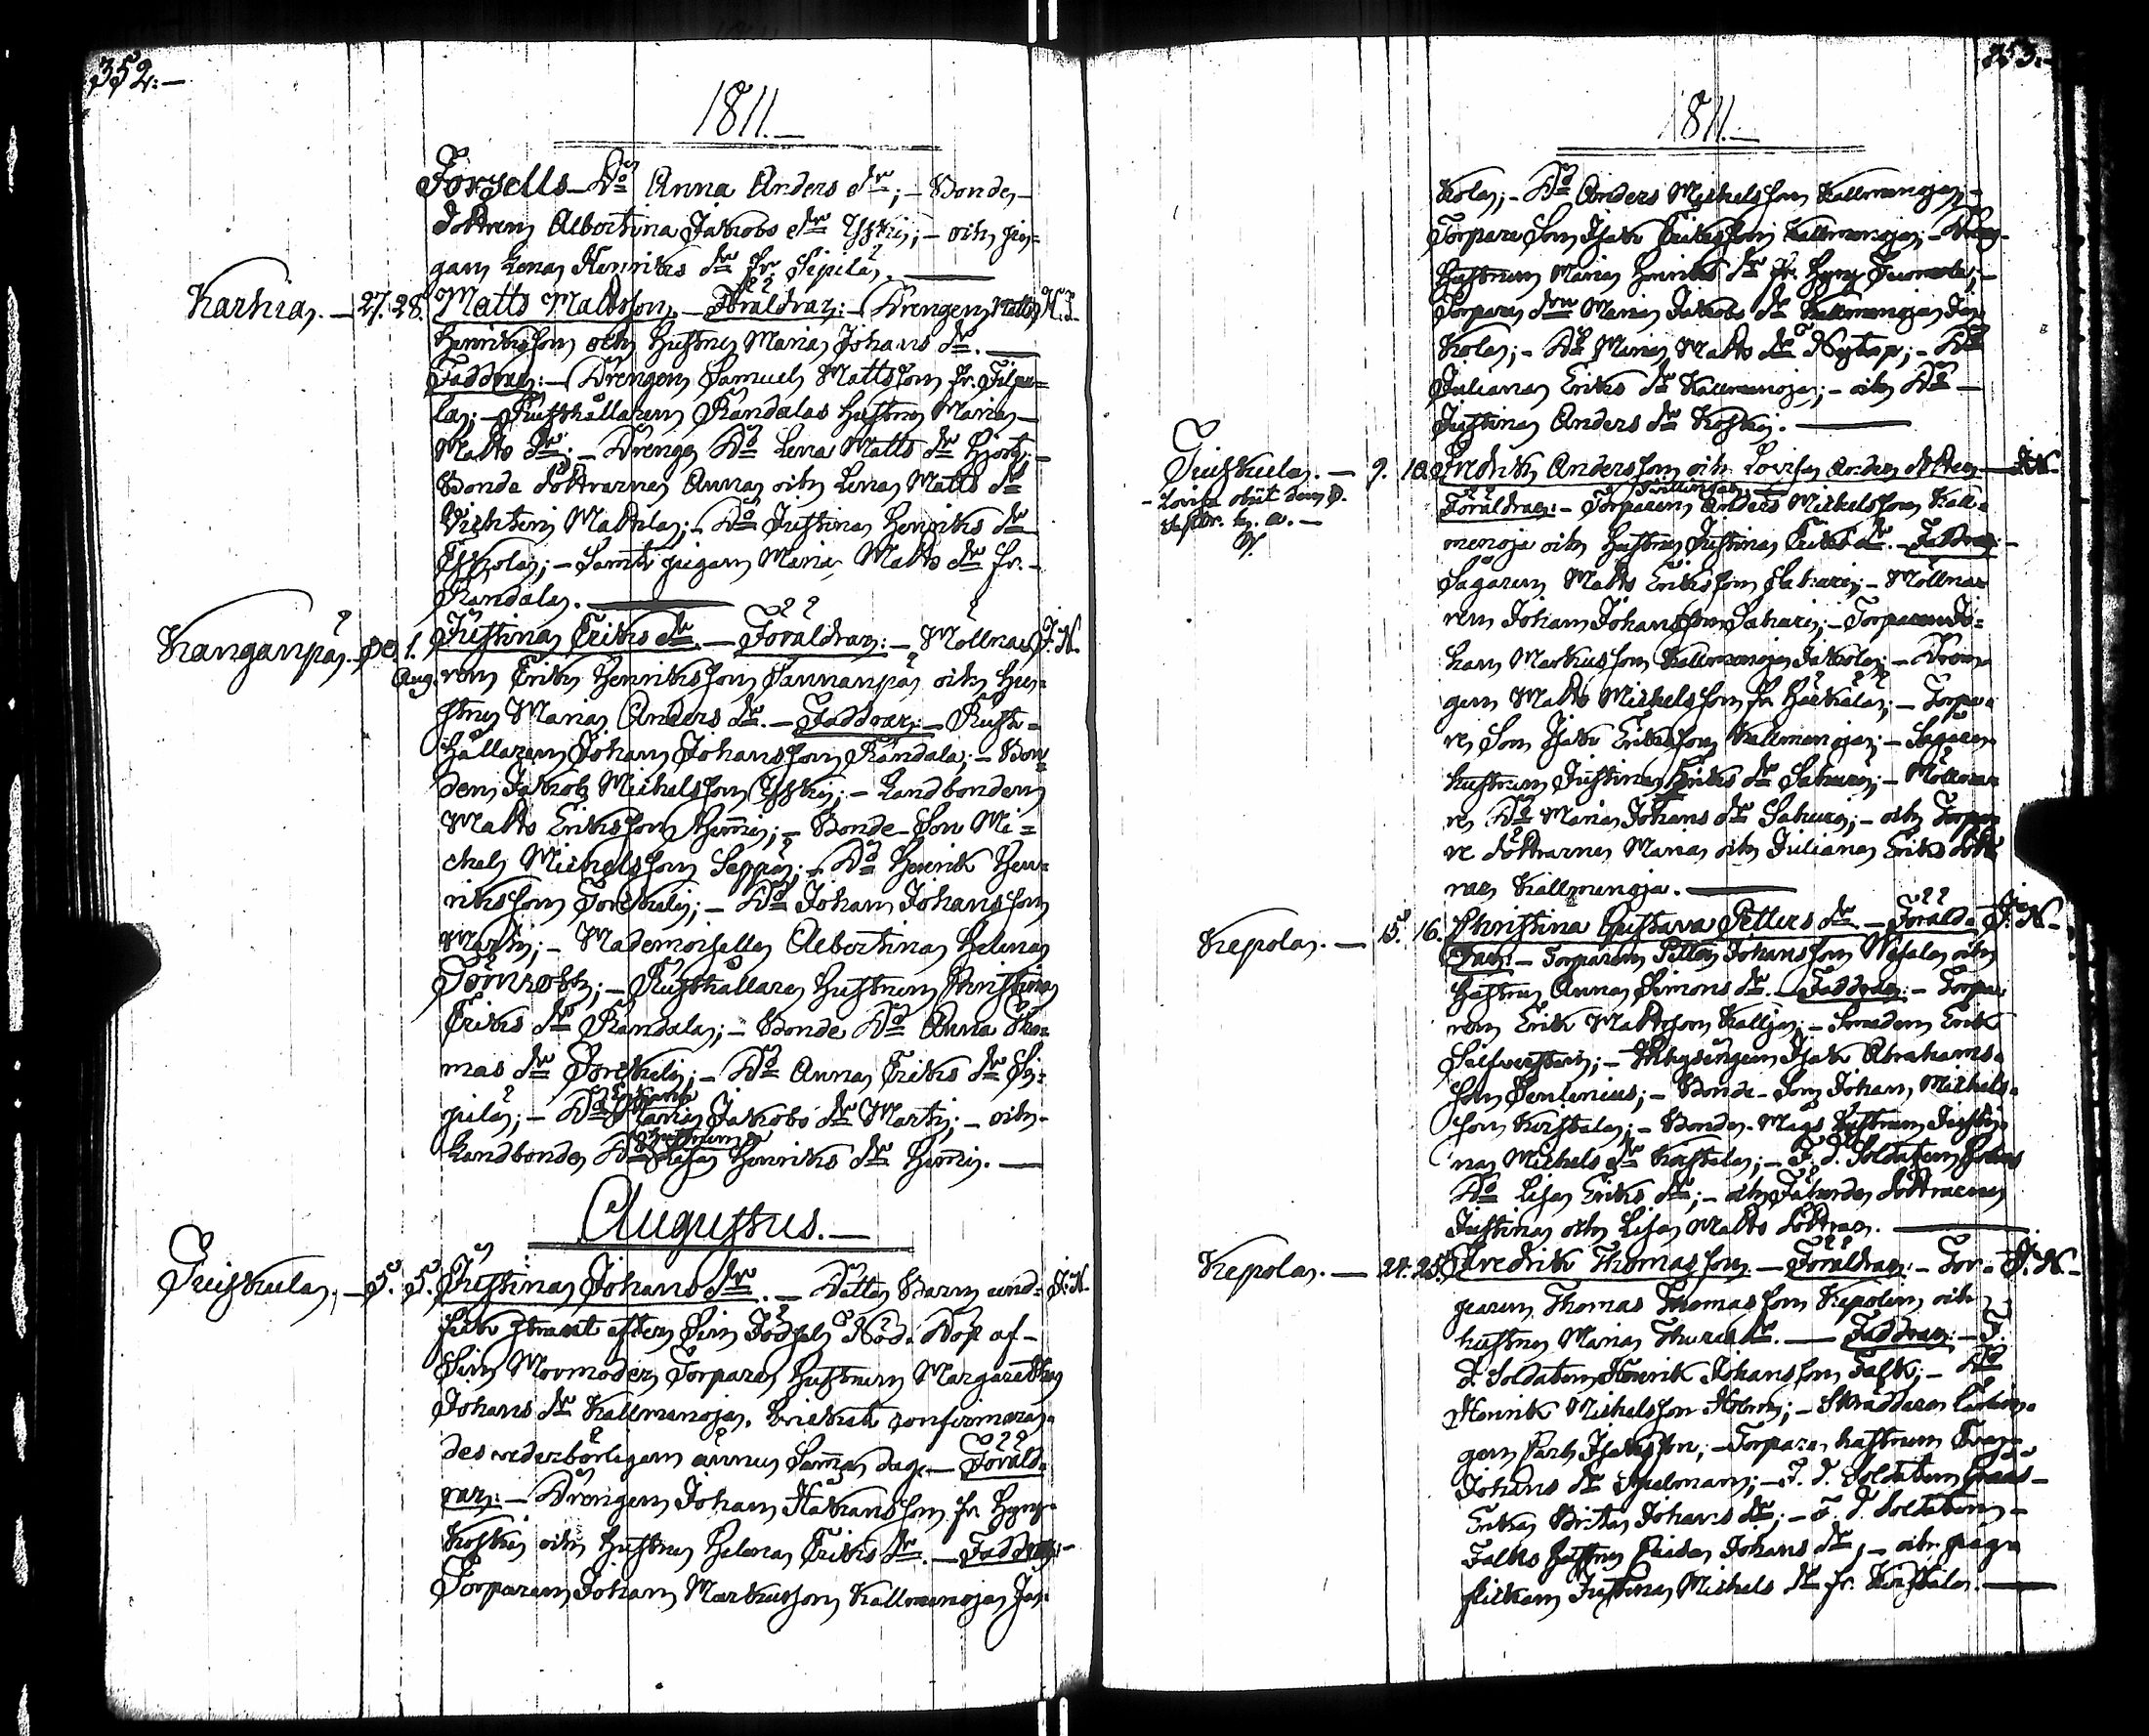 352.-
1811.-
Forsells - Do Anna Anders dr; - Bonde-
dottren Albertina Jakobs dr Yskij; - och pi-
gan Lena Henriks dr fr. Sipilä.
Karhia. - 27. 28. Matts Mattsson. - Föräldrar: - Drengen Matts
Henriksson och Hustru Maria Johans dr.
Faddrar: - Drengen Samuel Mattsson fr.
la; - Rusthållaren Randalas Hustru Maria
Matts dr; - Drenge Do Lena Matts dr Hjort; -
Bonde döttrarne Anna och Lena Matts dr
Mattila; - Do Justina Henriks dr
Eskola; - Samt pigan Maria Matts dr fr. -
Randala.
Kanganpä. - 30. 1. Aug. Justina Eriks dr. - Föräldrar: - Möllna- J. N.
ren Erik Henriksson Sannanpä och Hu-
stru Maria Anders dr. - Faddrar: - Rust-
hållaren Johan Johansson Randala; - Bon-
den Jakob Michelsson Yskij; - Landbonden
Matts Eriksson Heimi; - Bonde-Son Mi-
chel Michelsson Seppä; - Do Henrik Hen-
riksson Torckulij; - Do Johan Johansson
Marti; - Mademoiselle Albertina Helena
Törnroth; - Rusthållare Hustrun Christina
Eriks dr Randala; - Bonde Do Anna Tho-
mas dr Torckelij; - Do Anna Eriks dr Si-
pilä; - Do Enkan Maria Jakobs dr Marti; - och
Landbonde Do Hustrun Lisa Henriks dr Heimi.
Augustus.-
Juiskula. - 5. 5. Justina Johans dr. - Detta Barn und- J. N.
fick straxt efter Sin Födsel Nöd-Dop af
Sin Mormoder Torpare Hustrun Margaretha
Johans dr Kallmenoja, hvilket confirmera-
des vederbörligen ännu Samma dag. - Föräld-
rar: - Drengen Johan Håkansson fr. Hyny
Koski och Hustru Helena Eriks dr. - Faddrar: -
Torparen Johan Markusson Kallmenoja Ja-
1811.-
kola; - Do Anders Michelsson Kallmenoja; -
Torpare Son Isak Eriksson Kallmenoja; - Dreng-
Hustrun Maria Henriks dr fr. Hyny Tuomola; -
Torpare dr Maria Jakobs dr Kallmenoja Ja-
kola; - Do Maria Matts dr Nytorp; - Do
Juliana Eriks dr Kallmenoja; - och Do
Justina Anders dr Koski.
Juiskula. - 9. 10. Fredrik Andersson och Lovisa Anders dotter. - J. N.
- Lovisa obiit den
Septbr. h. a. -
Tvillingar.
Föräldrar: - Torparen Anders Michelsson Kall-
menoja och Hustru Justina Eriks dr. - Faddrar: -
Sågaren Matts Eriksson Sahari; - Möllna-
ren Johan Johansson Sahari; - Torparen Jo-
han Markusson Kallmenoja Jakola; - Dren-
gen Matts Michelsson fr. Häckälä; - Torpa-
re Son Isak Eriksson Kallmenoja; - Sågare
Hustrun Justina Eriks dr Sahari; - Möllna-
re Do Maria Johans dr Sahari; - och Torpa-
re döttrarne Maria och Juliana Eriks dött-
rar Kallmenoja.
Kepola. - 15. 16. Christina Gustava Petters dr. - Föräld- J. N.
rar: - Torparen Petter Johansson Wesala och
Hustru Anna Simons dr. - Faddrar: - Torpa-
ren Erik Mattsson Kallja; - Smeden Erik
Silfverstén; - Inhysingen Isak Abrahams-
son Senlenius; - Bonde-Son Johan Michels-
son Kiristala; - Bonde-Mågs Hustrun Justi-
na Michels dr Kiristala; - F. d. Soldaten
Do Lisa Eriks dr; - och döttrarne
Justina och Lisa Matts döttrar.
Kepola. - 24. 25. Fredrik Thomasson. - Föräldrar: - Tor- J. N.
paren Thomas Thomasson Kepolin och
Hustru Maria Thures dr. - Faddrar: - F.
d. Soldaten Henrik Johansson Falk; - Do
Henrik Michelsson Holm; - Skräddare Lärlin-
gen Carl Isaksson; - Torpare hustrun Eva
Johans dr Spelman; - F. d. Soldaten
Enka Brita Johans dr; - F. d. Soldaten
Falks Hustru Johans dr; - och piga
flickan Justina Michels dr fr. Kiristala.